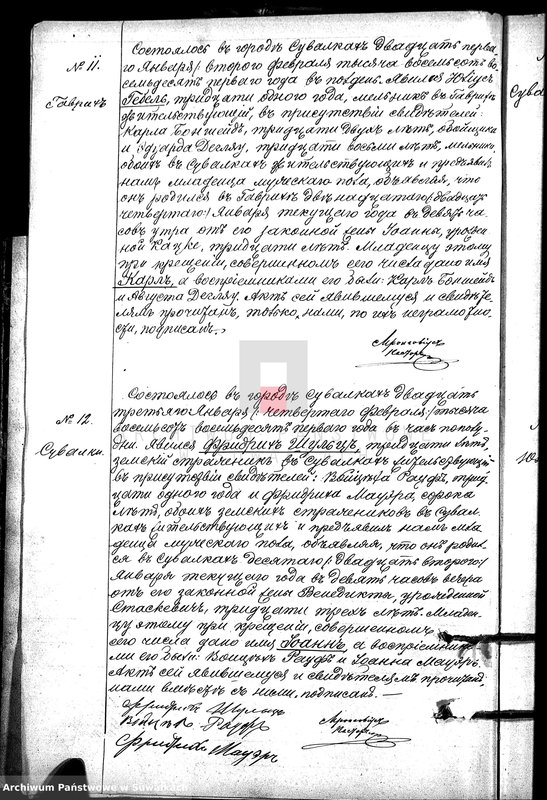 № 11.
Гаврихъ
Состоялось въ городѣ Сувалкахъ двадцать перва-
го Января / второго Февраля тысяча восемьсотъ во-
семьдесятъ перваго года въ полдень. Явился Юліусъ
Гебель, тридцати одного года, мельникъ въ Гаврихъ
жительствующій, въ присутствіи свидѣтелей:
Карла Боншейдъ, тридцати двухъ лѣтъ, обойщика
и Эдуарда Десляу, тридцати восьми лѣтъ, мельника,
обоихъ въ Сувалкахъ жительствующихъ и предъявилъ
намъ младенца мужескаго пола, объявляя, что
онъ родился въ Гаврихъ двѣнадцатаго / двадцать
четвертаго / Января текущаго года въ девять ча-
совъ утра отъ его законной жены Іоанны, урожден-
ной Кацке, тридцати лѣтъ. Младенцу этому
при крещеніи, совершенномъ сего числа дано имя
Карлъ, а воспріемниками его были: Карлъ Боншейдъ
и Августа Десляу. Актъ сей явившемуся и свидѣте-
лямъ прочитанъ, только нами, по ихъ неграмотно-
сти, подписанъ.
№ 12.
Сувалки.
Состоялось въ городѣ Сувалкахъ двадцать
третьяго Января / четвертаго Февраля / тысяча
восемьсотъ восемьдесятъ перваго года въ часъ пополу-
дни. Явился Фридрихъ Шульцъ, тридцати лѣтъ,
земскій стражникъ въ Сувалкахъ жительствующій
въ присутствіи свидѣтелей: Войцѣха Рауфъ, трид-
цати одного года и Фридриха Мауэра, сорока
лѣтъ, обоихъ земскихъ стражниковъ въ Сувал-
кахъ жительствующихъ и предъявилъ намъ мла-
денца мужескаго пола, объявляя, что онъ родил-
ся въ Сувалкахъ десятаго / двадцать второго /
Января текущаго года въ девять часовъ вечера
отъ его законной жены Бенедикты, урожденной
Сташкевичъ, тридцати трехъ лѣтъ. Младен-
цу этому при крещеніи, совершенномъ
сего числа дано имя Іоаннъ, а воспріемника-
ми его были: Войцѣхъ Рауфъ и Іоанна Мауэръ.
Актъ сей явившемуся и свидѣтелямъ прочитанъ,
нами вмѣстѣ съ ними, подписанъ. —
Фридрихъ Шульцъ
Войцѣхъ Рауфъ
Фридрихъ Мауэръ
Сува
Archiwum Państwowe w Suwałkach